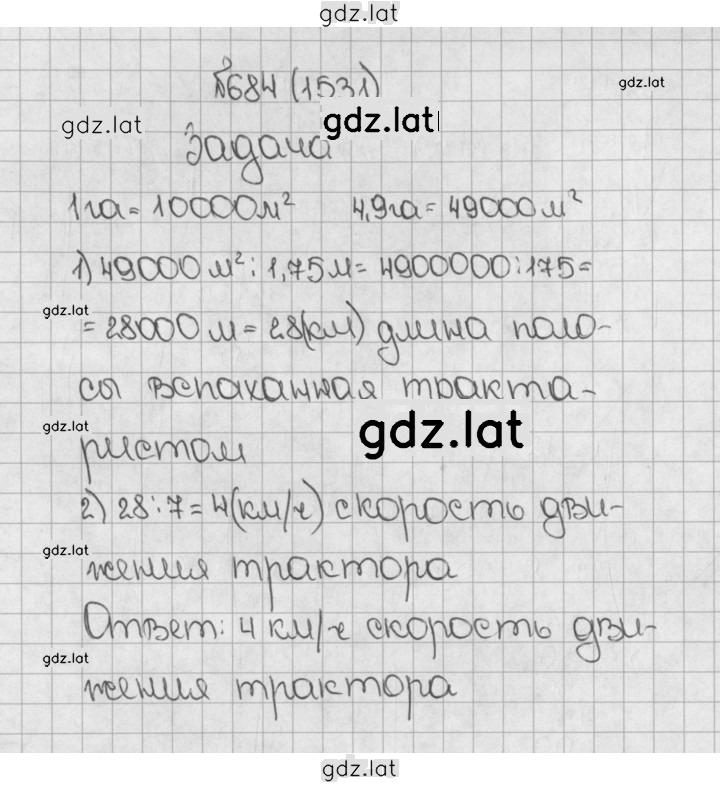 gdz.lat
№684 (1531)
gdz.lat
gdz.lat
gdz.lat
Задача
1га = 10000м² 4,9га = 49000м²
1) 49000 м² : 1,75м = 4900000:175=
gdz.lat
= 28000 м = 28(км) длина поло-
сы вспаханная тракта-
gdz.lat
gdz.lat
ристом
2) 28:7=4(км/ч) скорость дви-
gdz.lat
жения трактора
Ответ: 4 км/ч скорость дви-
gdz.lat
жения трактора
gdz.lat